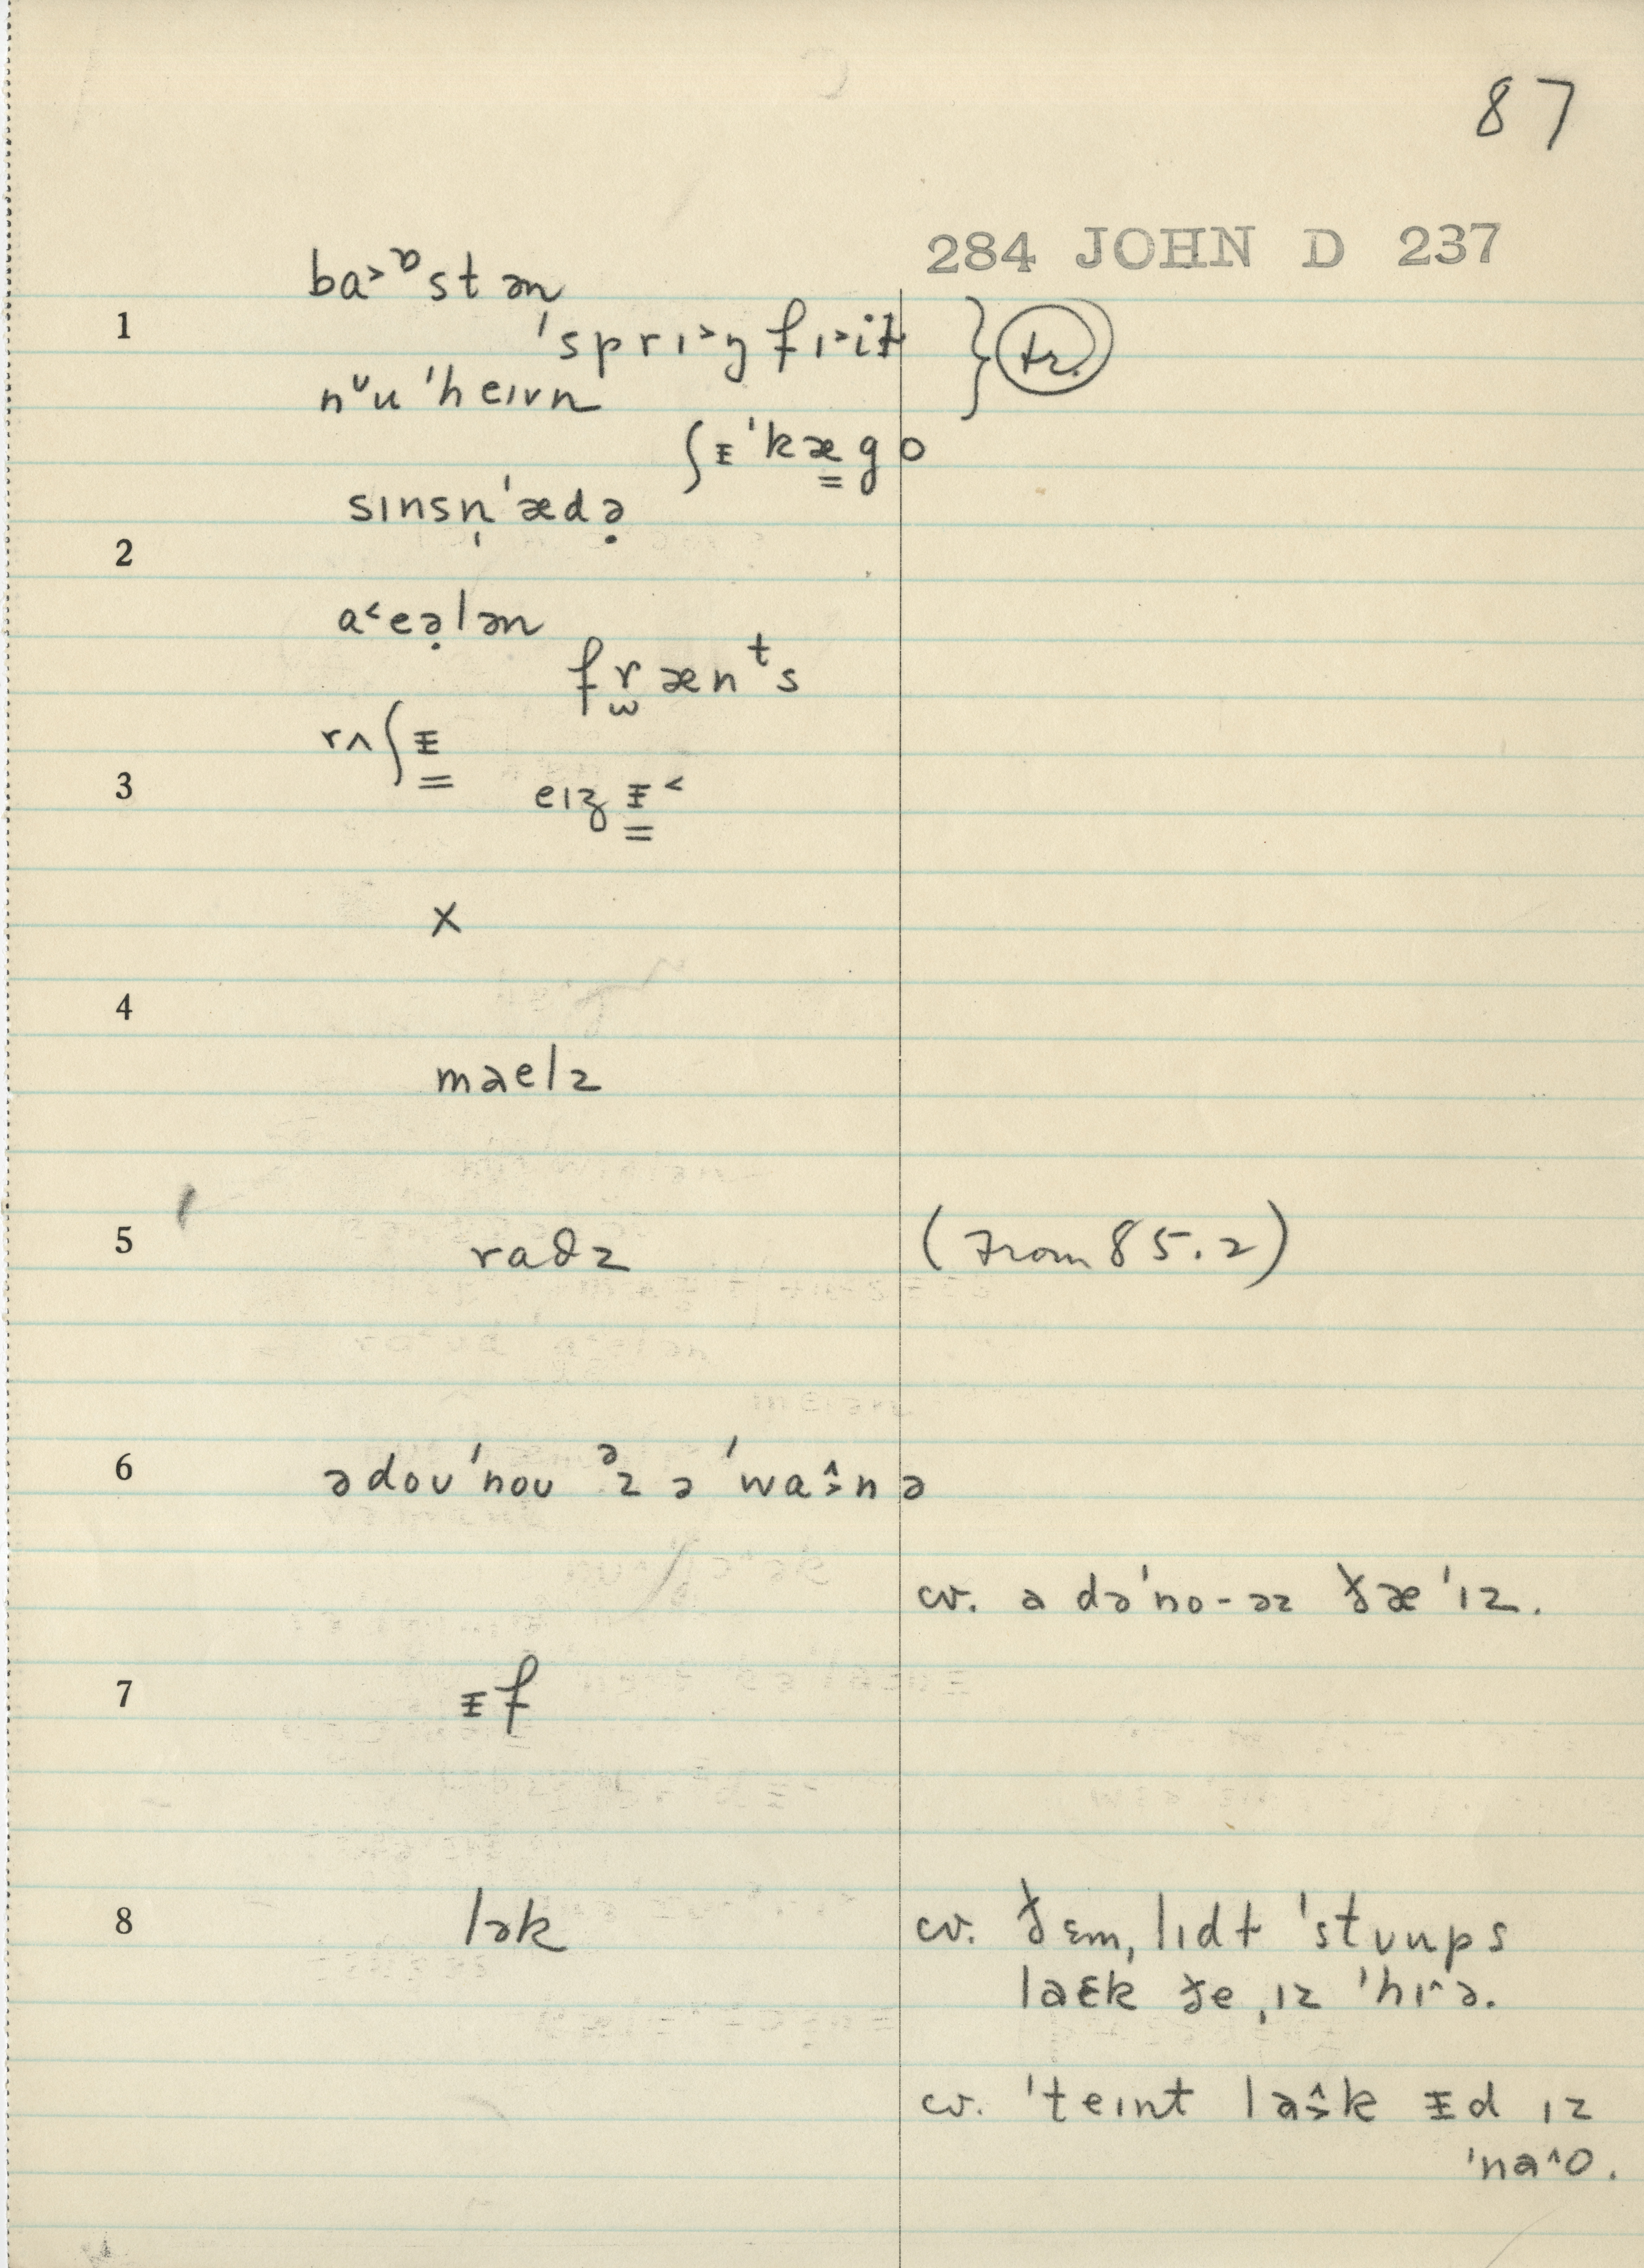 87
284 JOHN D 237
ba˃ᶛstən
1 'sprɪ˃ŋfɪ˃iɫ } tr.
nᶸu 'heɪvn
ʃᵻ'kæ̳go
sɪnsn̩'ædə̣
2
a˂eə̣lən
fr̫ænᵗs
rʌʃᵻ̳
3 eɪʒᵻ̳˂
x
4
maelz
5 radz (From 85.2)
6 ədoʊ'noʊ ᵊz ə 'waə̭nə
cv. a də'no-əz ðæ 'ɪz.
7 ᵻf
8 lək cv. ðɛm, lɪdɫ 'stʊups
laɛk ðe ˌɪz 'hɪ^ə.
cv. 'teɪnt la˃̂k ᵻd ɪz
'na^o.